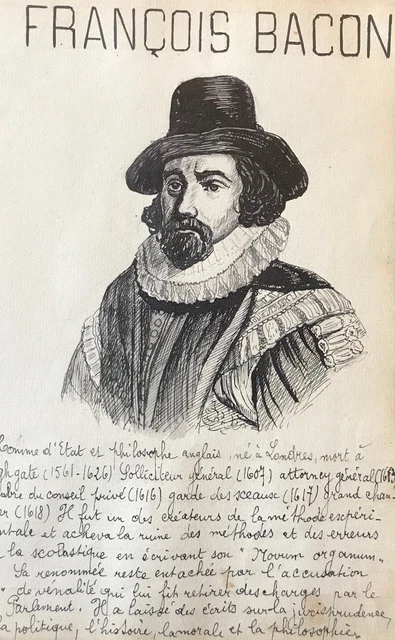 FRANÇOIS BACON
Homme d'Etat et philosophe anglais, né à Londres, mort à
ghgate (1561-1626) Solliciteur général (1607) attorney général (1613
mbre du conseil privé (1616) garde des sceaux (1617) grand chan-
er (1618) Il fut un des créateurs de la méthode expéri-
ntale et acheva la ruine des méthodes et des erreurs
la scolastique en écrivant son "Novum organum"
Sa renommée reste entachée par l'accusation
de vénalité qui lui fit retirer des charges par le
Parlement. Il a laissé des écrits sur la jurisprudence,
la politique, l'histoire, la morale et la philosophie.